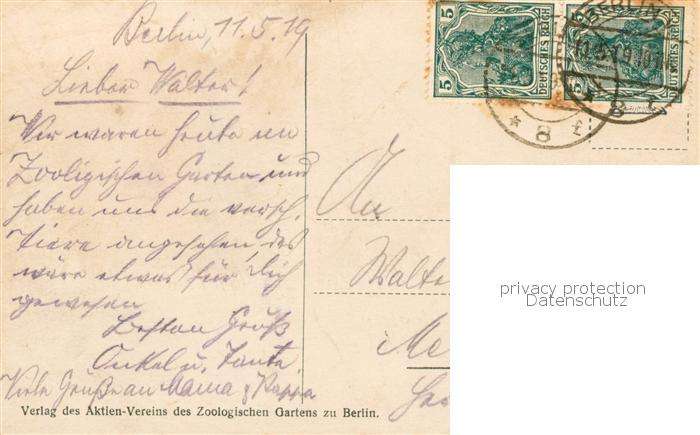 Berlin, 11.5.19
Lieber Walter!
Wir waren heute im
Zooligischen Garten und
haben uns die versch.
Tiere angesehen, das
wäre etwas für Dich
gewesen
Besten Gruß
Onkel u. Tante
Viele Grüße an Mama & Pappa
Verlag des Aktien-Vereins des Zoologischen Gartens zu Berlin.
5 DEUTSCHES REICH
5 DEUTSCHES REICH
BERLIN
* 8
An
Walte
Me
privacy protection
Datenschutz